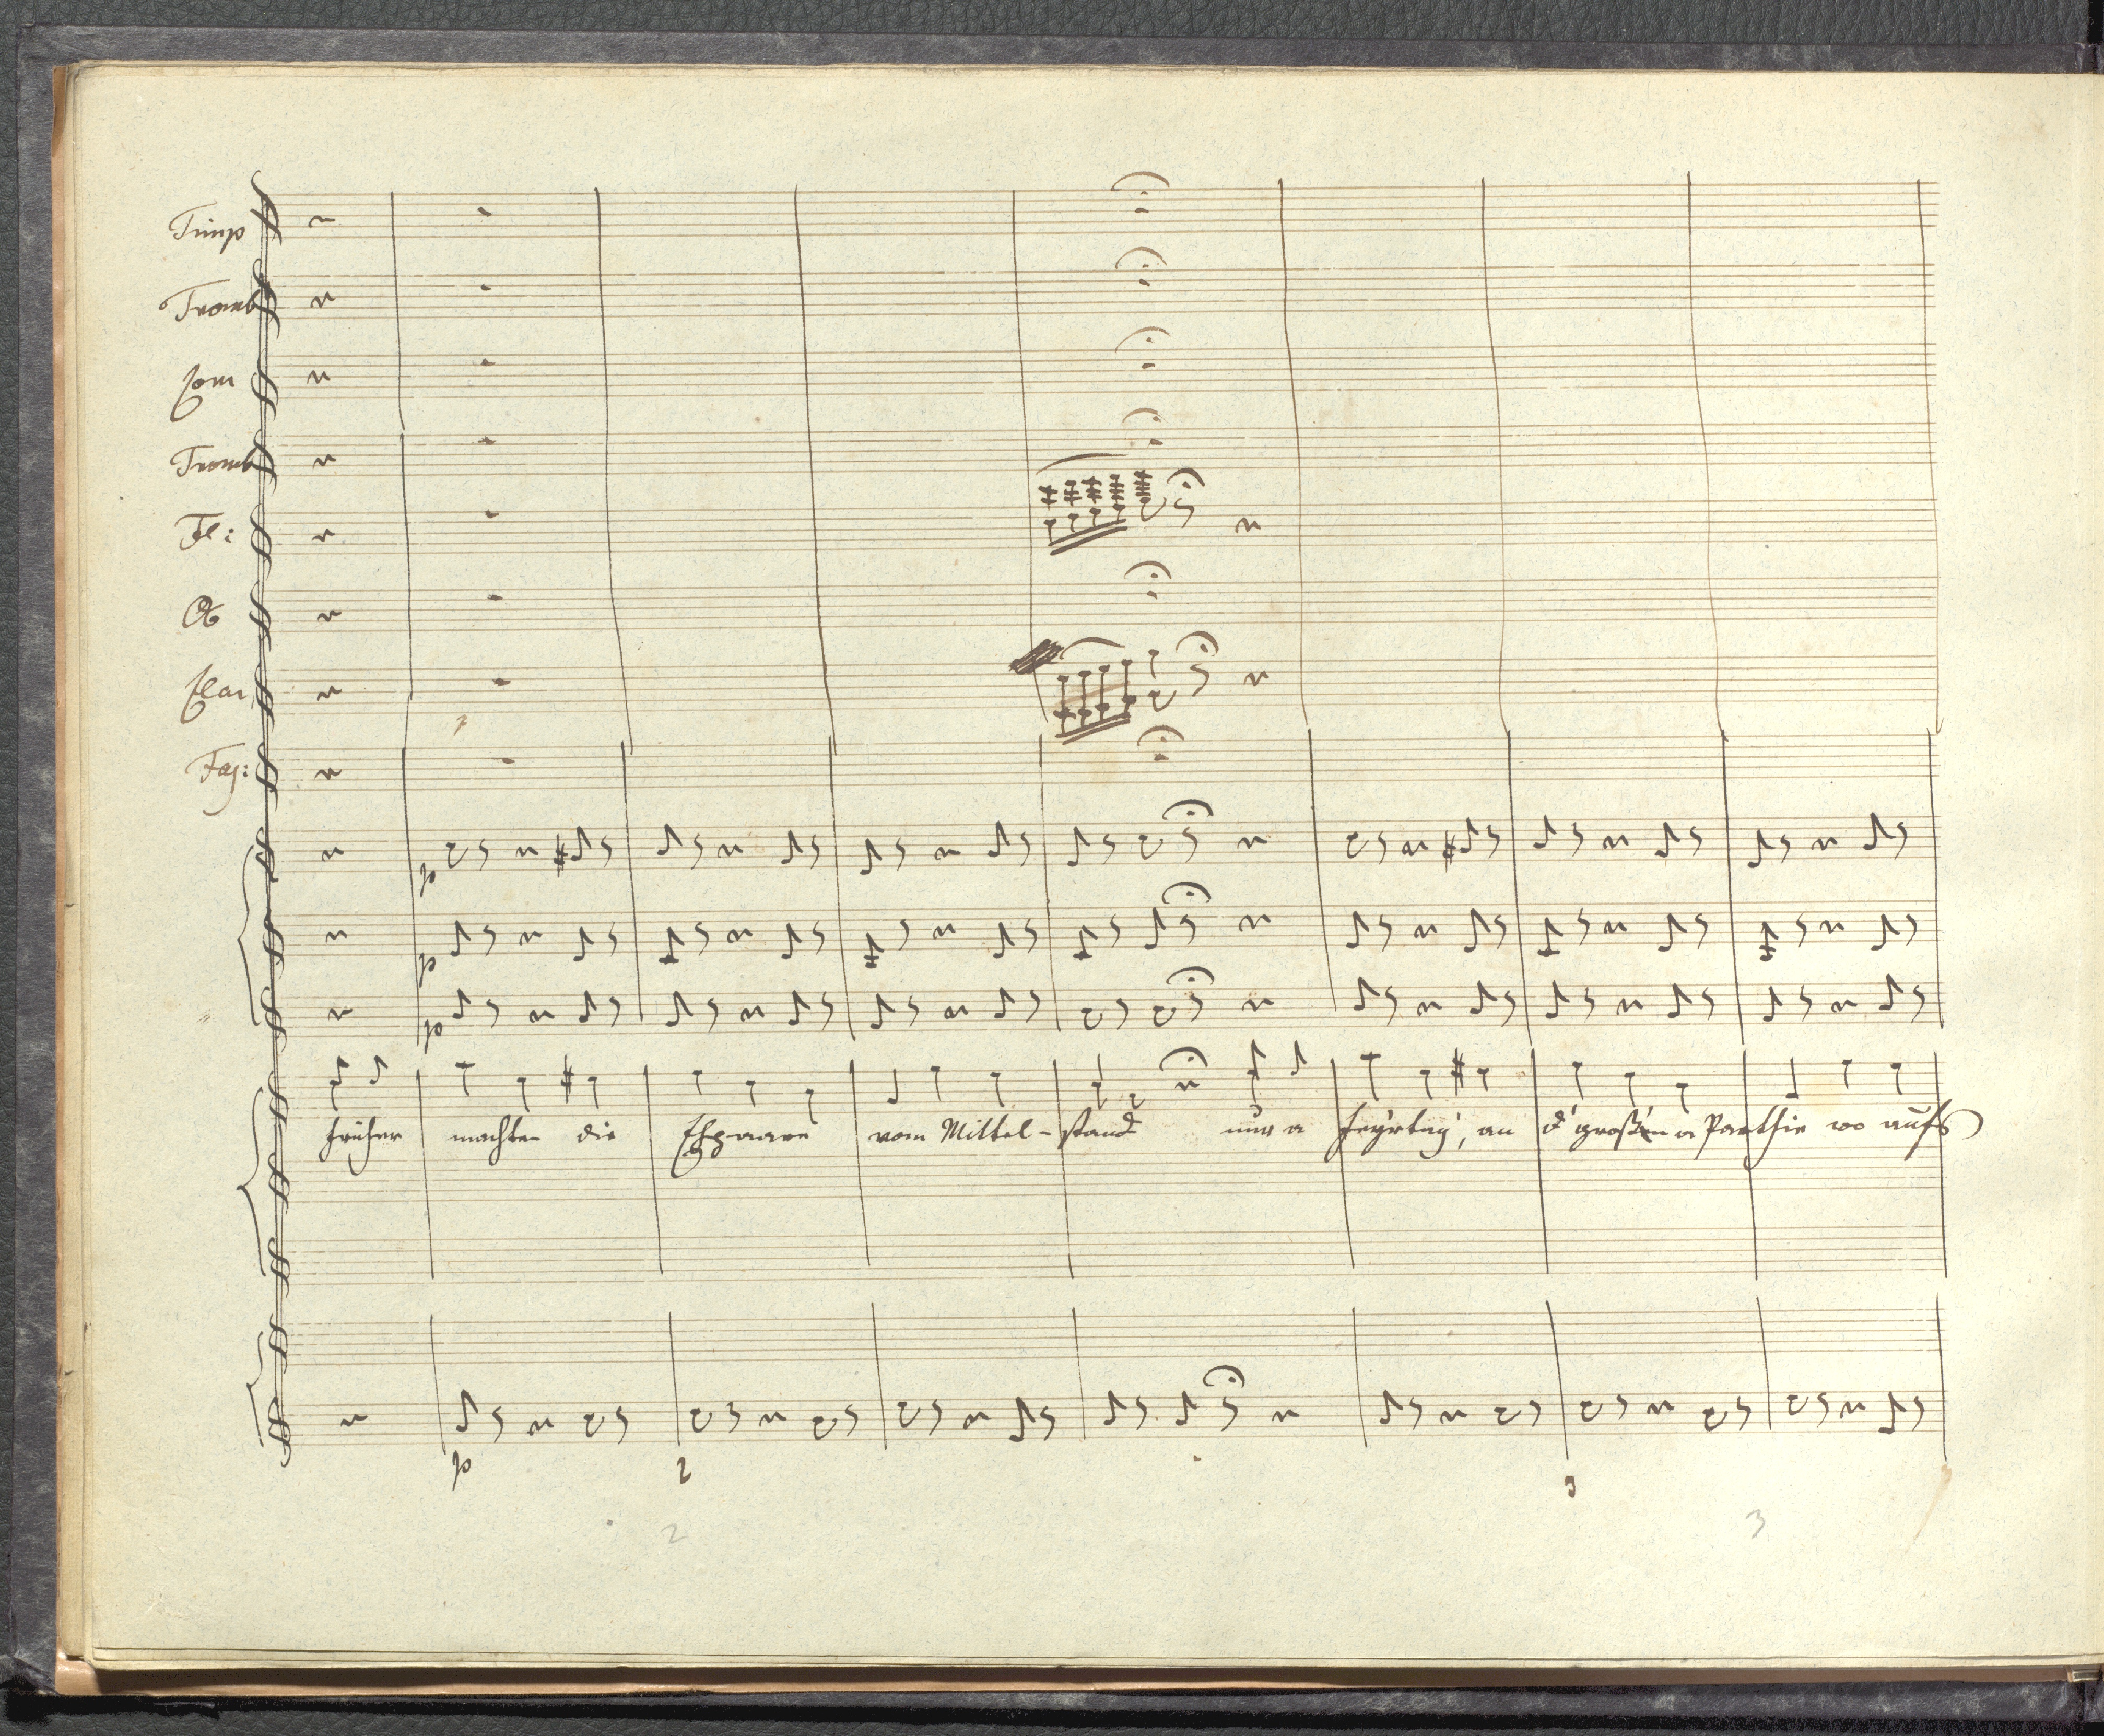 Timp
Tromb
Corn
Tromb
Fl:
Ob
Clar
Fag:
p
p
p
früher machten die Ehpaare vom Mittel-stand nur a Feyrtag, an d' großen a Parthie wo aufs
p 2 3
2 3